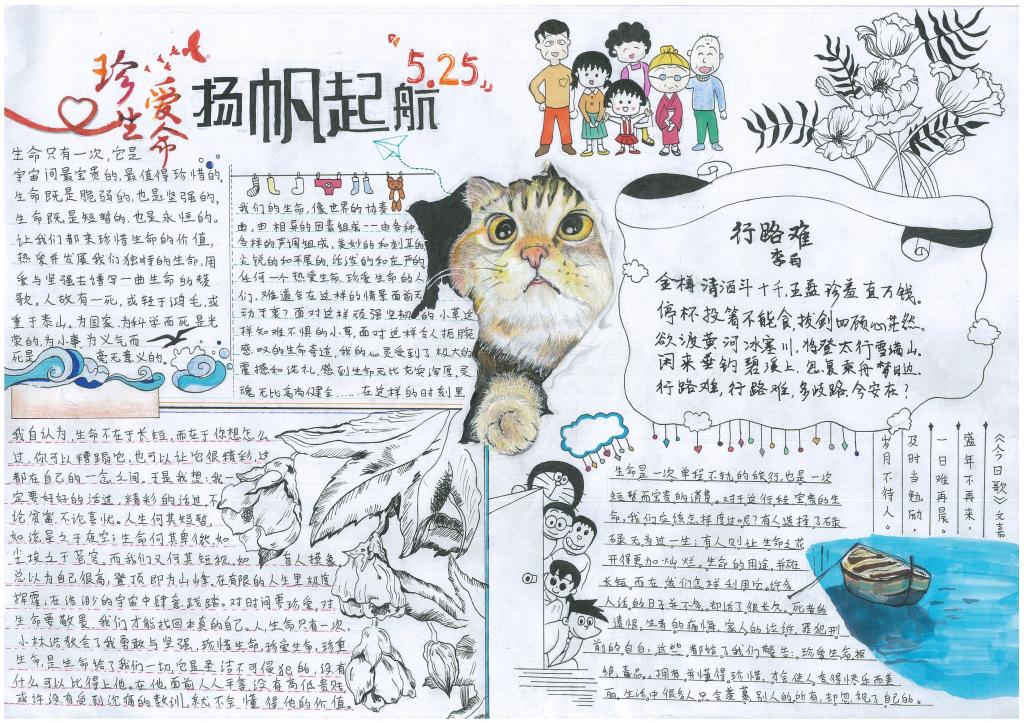 珍爱生命
扬帆起航
“5.25”
生命只有一次，它是
宇宙间最宝贵的，最值得珍惜的。
生命既是脆弱的，也是坚强的，
生命既是短暂的，也是永恒的。
让我们都来珍惜生命的价值，
热爱并发展我们独特的生命，用
爱与坚强去谱写一曲生命的赞
歌。人故有一死，或轻于鸿毛，或
重于泰山。为国家、为科学而死是光
荣的，为小事，为义气而
死是 毫无意义的。
我们的生命，像世界的协奏
曲，由相异的因素组成——由各种
各样的声调组成，美妙的和刺耳的，
尖锐的和平展的，活泼的和庄严的
任何一个热爱生命、珍爱生命的人
们，难道会在这样的情景面前无
动于衷？面对这样顽强坚韧的小草，这
样知难不惧的小草，面对这样令人扼腕
感叹的生命奇迹，我的心灵受到了极大的
震撼和洗礼，感到生命无比充实深厚，灵
魂无比高尚健全……在这样的时刻里
行路难
李白
金樽清酒斗十千，玉盘珍羞直万钱。
停杯投箸不能食，拔剑四顾心茫然。
欲渡黄河冰塞川，将登太行雪满山。
闲来垂钓碧溪上，忽复乘舟梦日边。
行路难，行路难，多歧路，今安在？
《今日歌》文嘉
盛年不再来，
一日难再晨。
及时当勉励，
岁月不待人。
我自认为，生命不在于长短，而在于你想怎么
过，你可以糟蹋它，也可以让它很精彩，这
都在自己的一念之间，于是我想：我一
定要好好的活过，精彩的活过，不
论贫富，不论喜忧。人生何其短暂，
如流星之于夜空；生命何其卑微，如
尘埃之于苍穹。而我们又何其短视，如 有人摸象
总以为自己很高，登顶即为山峰，在有限的人生里极度
挥霍；在浩渺的宇宙中肆意践踏。对时间要珍爱，对
生命要敬畏，我们才能找回本真的自己。人生命只有一次，
小林浩教会了我勇敢与坚强，珍惜生命，珍爱生命，珍重
生命，是生命给了我们一切，它是圣洁不可侵犯的，没有
什么可以比得上他，在他面前人人平等，没有高低贵贱，
或许没有受到沉痛的教训，就不会懂得他的价值。
生命是一次单程不轨的旅行，也是一次
短暂而宝贵的消费。对于这行程宝贵的生
命，我们应该怎样度过呢？有人选择了碌
碌无为过一生；有人则让生命之花
开得更加灿烂，生命的用途，并不在
长短，而在我们怎样利用它。许多
人活的日子并不多，却活了很长久。死者的
遗恨，生者的痛悔，家人的泣诉，罪犯刑
前的自白，这些都给了我们警告：珍爱生命，拒
绝毒品，拥有，并懂得珍惜，才会使人变得快乐而美
丽，生活中很多人只会羡慕别人的所有，却忽视了自己的。